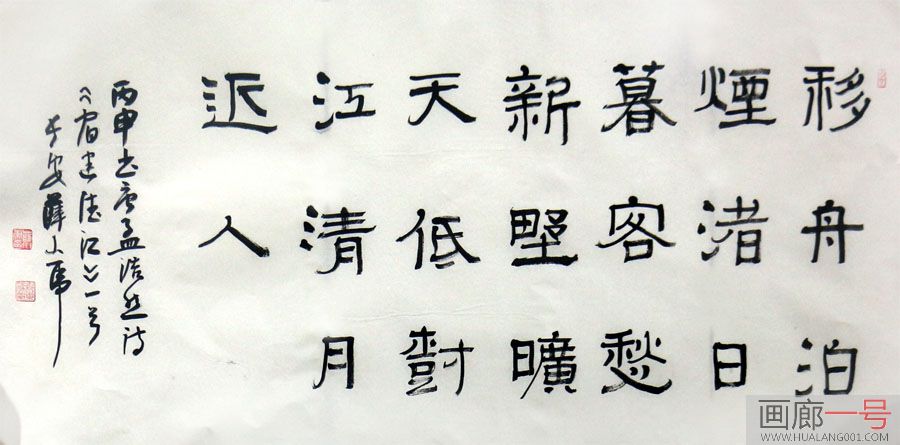 移舟泊
煙渚日
暮客愁
新野曠
天低尌
江清月
近人
丙申书唐孟浩然诗
《宿建德江》一首
长安薛
画廊一号
WWW.HUALANG001.COM